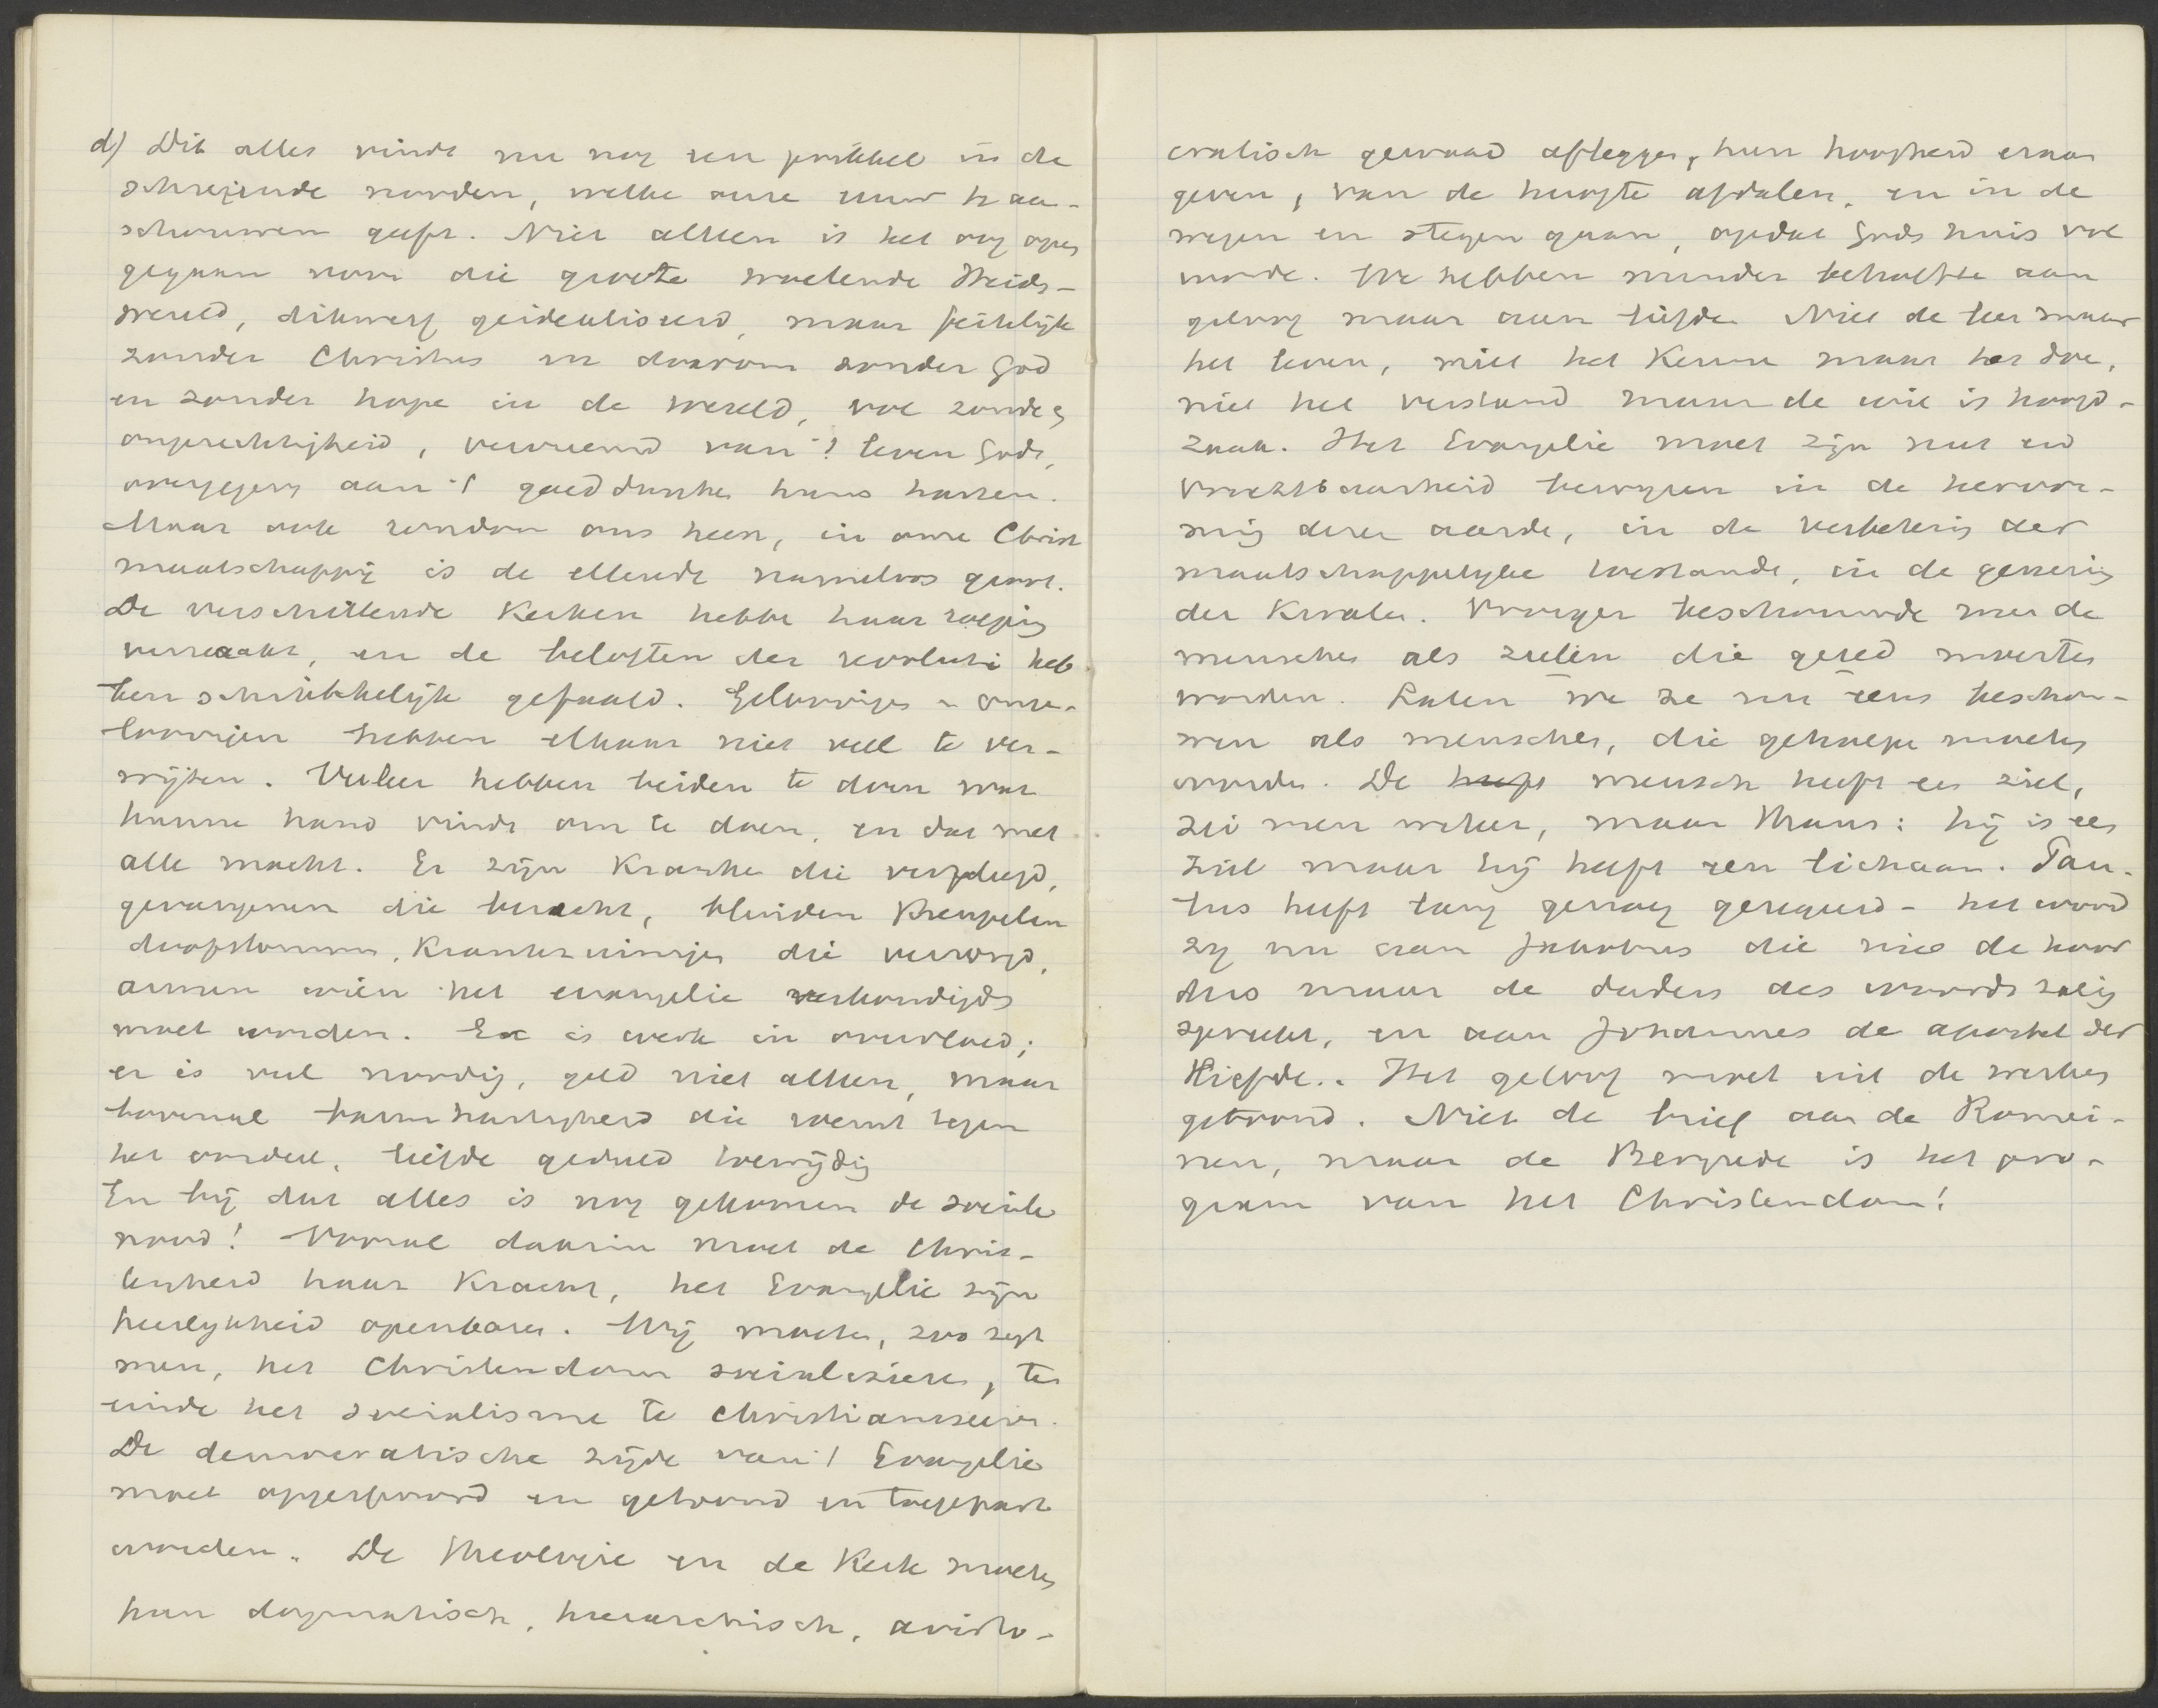 d) Dit alles vindt nu nog een prikkel in de
schreiende nooden, welke onze eeuw te aan-
schouwen geeft. Niet alleen is het oog open
gegaan voor die groote woelende Heiden-
wereld, dikwerf geidealiseerd, maar feitelijk
zonder Christus en daarom zonder God
en zonder hope in de wereld, vol zonde &
ongerechtigheid, vervreemd van 't leven Gods,
overgegeven aan 't goeddunken huns harten.
Maar ook rondom ons heen, in onze Christ
maatschappij is de ellende nameloos groot.
De verschillende Kerken hebben haar roeping
verzaakt, en de beloften der revolutie heb-
ben schrikkelijk gefaald. Geloovigen en onge-
loovigen hebben elkaar niet veel te ver-
wijten. Veeleer hebben beiden te doen wat
hunne hand vindt om te doen, en dat met
alle macht. Er zijn Kranken die verpleegd,
gevangenen die bezocht, blinden Kreupelen
doofstommen, Krankzinnigen die verzorgd,
armen wien het evangelie verkondigd
moet worden. Er is werk in overvloed;
er is veel noodig, geld niet alleen, maar
bovenal barmhartigheid die roemt tegen
het oordeel, liefde geduld toewijding
En bij dat alles is nog gekomen de sociale
nood! Vooral daarin moet de Chris-
tenheid haar Kracht, het Evangelie zijn
heerlykheid openbaren. Wij moeten, zoo zegt
men, het Christendom socialiseren, ten
einde het socialisme te christianiseren.
De democratische zijde van 't Evangelie
moet opgespoord en getoond en toegepast
worden. De Theologie en de Kerk moeten
hun dogmatisch, hierarchisch, aristo-
cratisch gewaad afleggen, hun hoogheid eraan
geven, van de hoogte afdalen, en in de
wegen en stegen gaan, opdat Gods huis vol
worde. We hebben minder behoefte aan
geloof maar aan liefde. Niet de leer maar
het leven, niet het Kennen maar het doen,
niet het verstand maar de wil is hoofd-
zaak. Het Evangelie moet zijn nut en
vruchtbaarheid bewijzen in de hervor-
ming dezer aarde, in de verbetering der
maatschappelyke toestanden, in de genezing
der Kwalen. Vroeger beschouwde men de
menschen als zielen die gered moesten
worden. Laten we ze nu eens beschou-
wen als menschen, die geholpen moeten
worden. De heeft mensch heeft een ziel,
zei men weleer, maar thans: hij is een
ziel maar hij heeft een lichaam. Pau-
lus heeft lang genoeg geregeerd - het woord
zy nu aan Jakobus die niet de hoor
ders maar de daders des woords zalig
spreekt, en aan Johannes de apostel der
liefde.. Het geloof moet uit de werken
getoond. Niet de brief aan de Romei-
nen, maar de Bergrede is het pro-
gram van het Christendom!